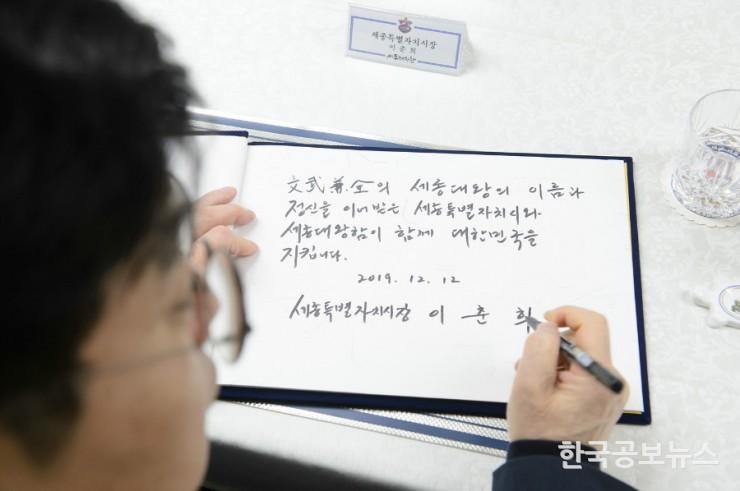 세종특별자치시장
이 춘 희
文武兼全의 세종대왕의 이름과
정신을 이어받은 세종특별자치시와
세종대왕함이 함께 대한민국을
지킵니다.
2019. 12. 12
세종특별자치시장 이 춘 희
한국공보뉴스